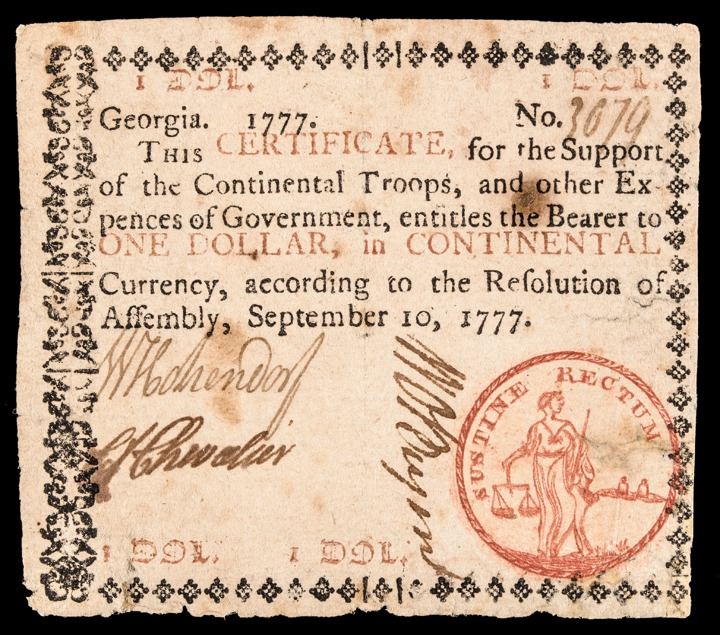 1 DOL. 1 DOL.
Georgia. 1777. No. 3079
THIS CERTIFICATE, for the Support
of the Continental Troops, and other Ex-
pences of Government, entitles the Bearer to
ONE DOLLAR, in CONTINENTAL
Currency, according to the Reſolution of
Aſſembly, September 10, 1777.
Chevalier
SUSTINE RECTUM
1 DOL. 1 DOL.